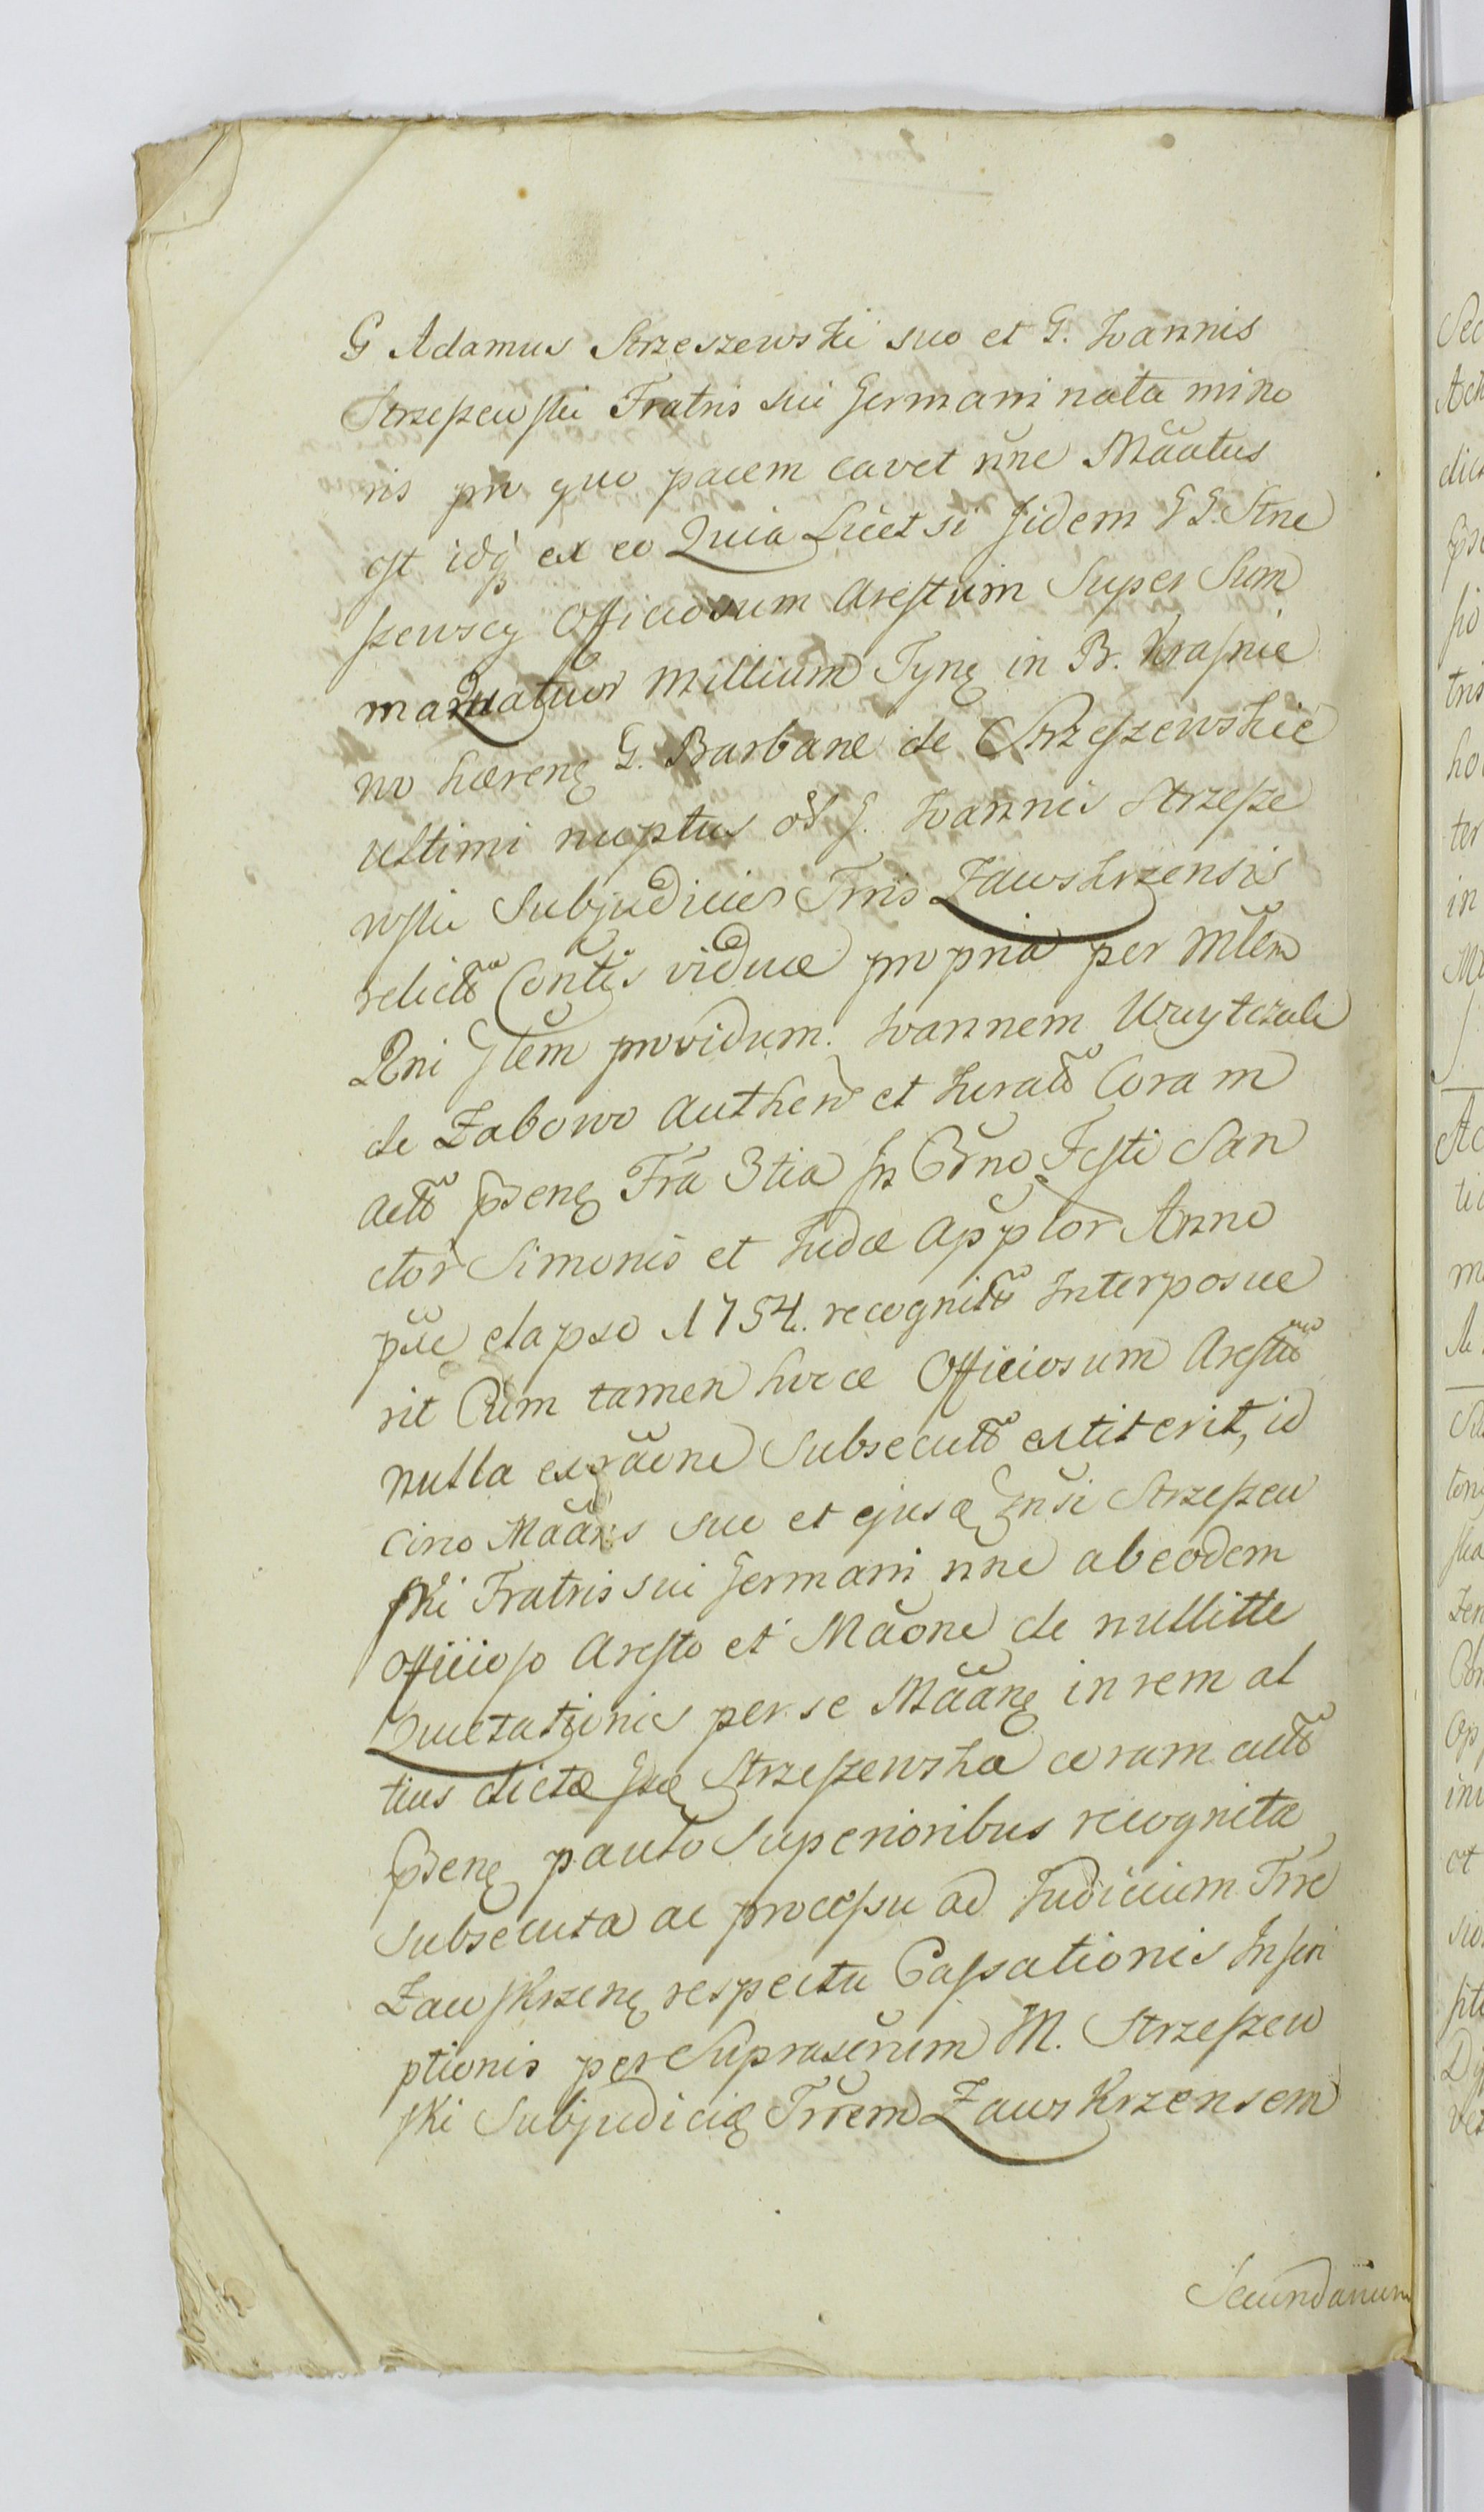 G Adamus Strzeszewski suo et G. Ioannis
Strzeszewski Fratris sui Germani natu mino
ris pro quo pacem cavet nunc Mãatus
est idq ex eo Quia Licet si Iidem GG. Strze
szewscy Officiosum Arestum Super Sum
ma quatuor Millium Tynę in B. Krasnie
wo hærenę G. Barbaræ de Strzeszewskie
ultimi nuptus olɔ G. Ioannis Strzesze
wski Subjudicis Tris Zawskrzensis
relictæ Contis viduæ propria per Mtlem
Rni Gtlem providum. Ioannem Wuytczak
de Zabowo authen et Iurat Coram
actis pñsenę Fra 3tia In Crno Festi San
ctor Simonis et Iudæ Applor Anno
pñe elapso 1754. recognitũ Interposue
rit Cum tamen hocce Officiosum Arestũ
nulla exãone Subsecutũ extiterit, id
circo Mãans suo et ejusd Gnsi Strzeszew
ski Fratris sui Germani nñc ab eodem
officioso Aresto et Mãone de nullitte
Quietationis per se Mãanę in rem al
tius dictæ Gsæ Strzeszewska coram actis
pñsenę paulo Superioribus recognitæ
subsecuta ac processu ad Iudicium Trre
Zawskrzenę respectu Cassationis Inscri
ptionis per Suprascrum M. Strzeszew
ski Subjudicę Trrem Zawskrzensem
Secundarium